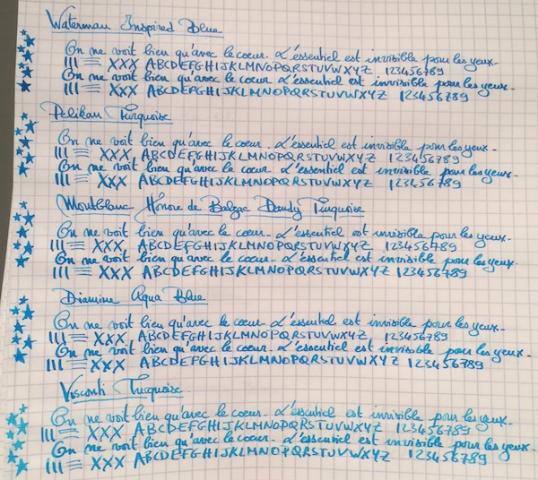 Waterman Inspired Blue
On ne voit bien qu'avec le coeur. L'essentiel est invisible pour les yeux.
III XXX ABCDEFGHIJKLMNOPQRSTUVWXYZ 123456789
On ne voit bien qu'avec le coeur. L'essentiel est invisible pour les yeux.
III XXX ABCDEFGHIJKLMNOPQRSTUVWXYZ 123456789
Pelikan Turquoise
On ne voit bien qu'avec le coeur. L'essentiel est invisible pour les yeux.
III XXX ABCDEFGHIJKLMNOPQRSTUVWXYZ 123456789
On ne voit bien qu'avec le coeur. L'essentiel est invisible pour les yeux.
III XXX ABCDEFGHIJKLMNOPQRSTUVWXYZ 123456789
Montblanc Honoré de Balzac Dandy Turquoise
On ne voit bien qu'avec le coeur. L'essentiel est invisible pour les yeux.
III XXX ABCDEFGHIJKLMNOPQRSTUVWXYZ 123456789
On ne voit bien qu'avec le coeur. L'essentiel est invisible pour les yeux.
III XXX ABCDEFGHIJKLMNOPQRSTUVWXYZ 123456789
Diamine Aqua Blue
On ne voit bien qu'avec le coeur. L'essentiel est invisible pour les yeux.
III XXX ABCDEFGHIJKLMNOPQRSTUVWXYZ 123456789
On ne voit bien qu'avec le coeur. L'essentiel est invisible pour les yeux.
III XXX ABCDEFGHIJKLMNOPQRSTUVWXYZ 123456789
Visconti Turquoise
On ne voit bien qu'avec le coeur. L'essentiel est invisible pour les yeux.
III XXX ABCDEFGHIJKLMNOPQRSTUVWXYZ 123456789
On ne voit bien qu'avec le coeur. L'essentiel est invisible pour les yeux.
III XXX ABCDEFGHIJKLMNOPQRSTUVWXYZ 123456789